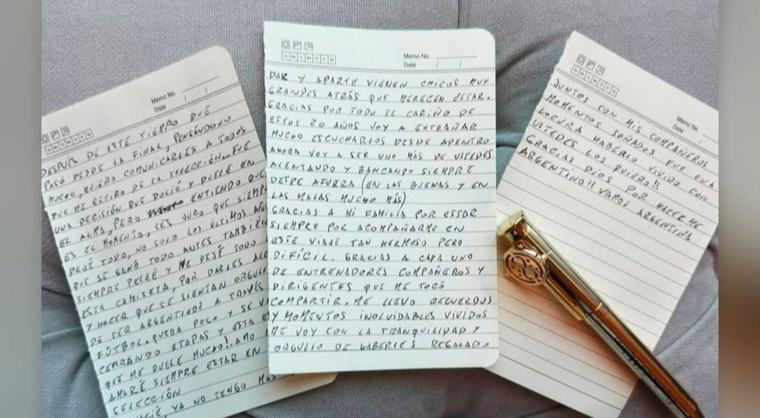 Memo No.
Date / /
DESPUES DE ESTE TIEMPO QUE
PASÓ DESDE LA FINAL, PENSANDOLO
MUCHO, QUIERO COMUNICARLES A TODOS
QUE ME RETIRO DE LA SELECCIÓN. FUE
UNA DECISIÓN QUE DOLIÓ Y DUELE EN
EL ALMA, PERO ENTIENDO QUE
ES EL MOMENTO. LES JURO QUE SIEMPRE
DEJÉ TODO, NO SOLO LOS ULTIMOS AÑOS
QUE SE GANÓ TODO ANTES TAMBIÉN
SIEMPRE PELEÉ Y ME DEJÉ TODO
ESTA CAMISETA, POR DARLES ALE
Y HACER QUE SE SIENTAN ORGULL
DE SER ARGENTINOS A TRAVÉS
FÚTBOL. QUEDA POCO Y SE VA
CERRANDO ETAPAS Y ESTA E
QUE ME DUELE MUCHO! AMO
AMARÉ SIEMPRE ESTAR EN
SELECCIÓN
YA NO TENGO MÁS
Memo No.
Date / /
DAR Y APARTE VIENEN CHICOS MUY
GRANDES ATRÁS QUE MERECEN ESTAR.
GRACIAS POR TODO EL CARIÑO DE
ESTOS 20 AÑOS VOY A EXTRAÑAR
MUCHO ESCUCHARLOS DESDE ADENTRO
AHORA VOY A SER UNO MÁS DE USTEDES
ALENTANDO Y BANCANDO SIEMPRE
DESDE AFUERA (EN LAS BUENAS Y EN
LAS MALAS MUCHO MÁS)
GRACIAS A MI FAMILIA POR ESTAR
SIEMPRE POR ACOMPAÑARME EN
ESTE VIAJE TAN HERMOSO PERO
DIFÍCIL. GRACIAS A CADA UNO
DE ENTRENADORES COMPAÑEROS Y
DIRIGENTES QUE ME TOCÓ
COMPARTIR. ME LLEVO RECUERDOS
Y MOMENTOS INOLVIDABLES VIVIDOS
ME VOY CON LA TRANQUILIDAD Y
ORGULLO DE HABERLES REGALADO.
Memo No.
Date / /
JUNTOS CON MIS COMPAÑEROS
MOMENTOS SOÑADOS FUE UNA
LOCURA HABERLO VIVIDO CON
USTEDES LOS QUIERO!!
GRACIAS DIOS POR HACERME
ARGENTINO!! VAMOS ARGENTINA